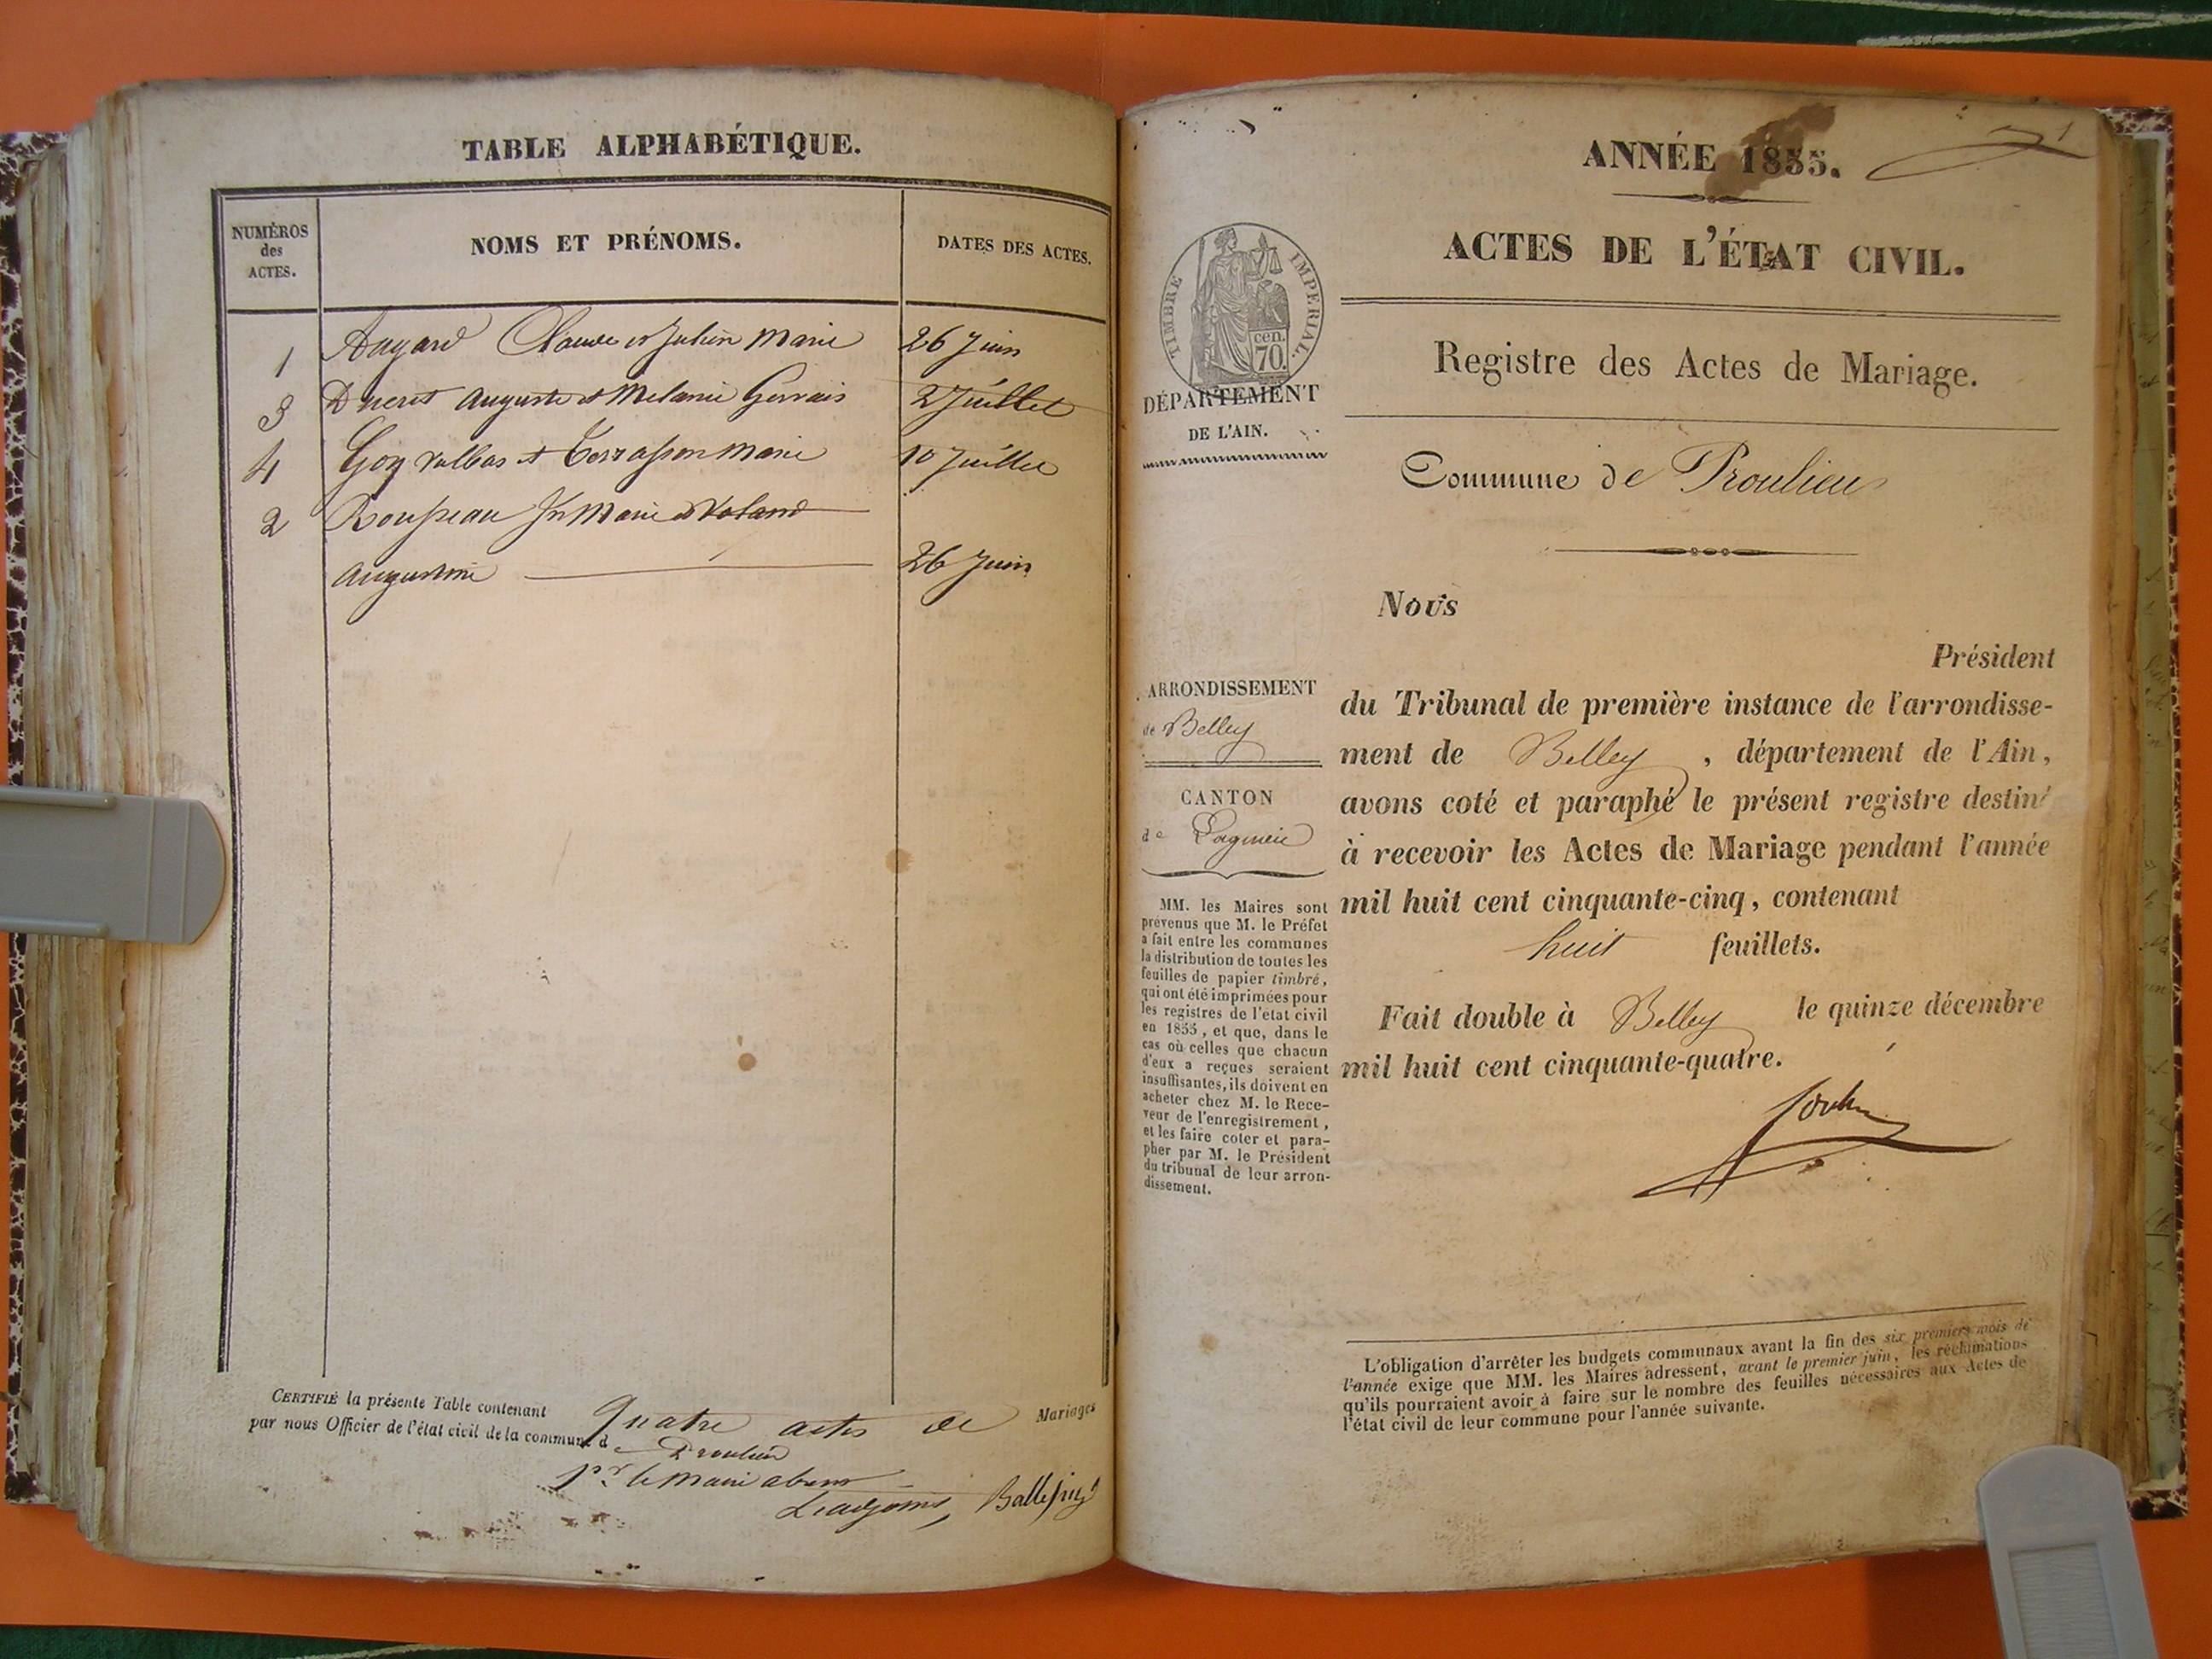 TABLE ALPHABÉTIQUE.
NUMÉROS des ACTES.
NOMS ET PRÉNOMS.
DATES DES ACTES.
1 Augard Claude et Julien Marie 26 Juin
3 Ducret Auguste et Melanie Gervais 2 Juillet
4 Goy Valbas et Terrasson Marie 10 Juillet
2 Rousseau Jn Marie et
Augustine 26 Juin
CERTIFIÉ la présente Table contenant quatre actes de Mariages
par nous Officier de l'état civil de la commune de Proulieu
Pr. le Maire absent
L'adjoint,
ANNÉE 1855.
1
ACTES DE L'ÉTAT CIVIL.
TIMBRE IMPERIAL.
cen.
70.
DÉPARTEMENT
DE L'AIN.
Registre des Actes de Mariage.
Commune de Proulieu
Nous
Président
ARRONDISSEMENT
de Belley
CANTON
de Lagnieu
du Tribunal de première instance de l'arrondisse-
ment de Belley, département de l'Ain,
avons coté et paraphé le présent registre destiné
à recevoir les Actes de Mariage pendant l'année
mil huit cent cinquante-cinq, contenant
huit feuillets.
Fait double à Belley le quinze décembre
mil huit cent cinquante-quatre.
MM. les Maires sont
prévenus que M. le Préfet
a fait entre les communes
la distribution de toutes les
feuilles de papier timbré,
qui ont été imprimées pour
les registres de l'état civil
en 1855, et que, dans le
cas où celles que chacun
d'eux a reçues seraient
insuffisantes, ils doivent en
acheter chez M. le Rece-
veur de l'enregistrement,
et les faire coter et para-
pher par M. le Président
du tribunal de leur arron-
dissement.
L'obligation d'arrêter les budgets communaux avant la fin des six premiers mois de
l'année exige que MM. les Maires adressent, avant le premier juin, les réclamations
qu'ils pourraient avoir à faire sur le nombre des feuilles nécessaires aux Actes de
l'état civil de leur commune pour l'année suivante.